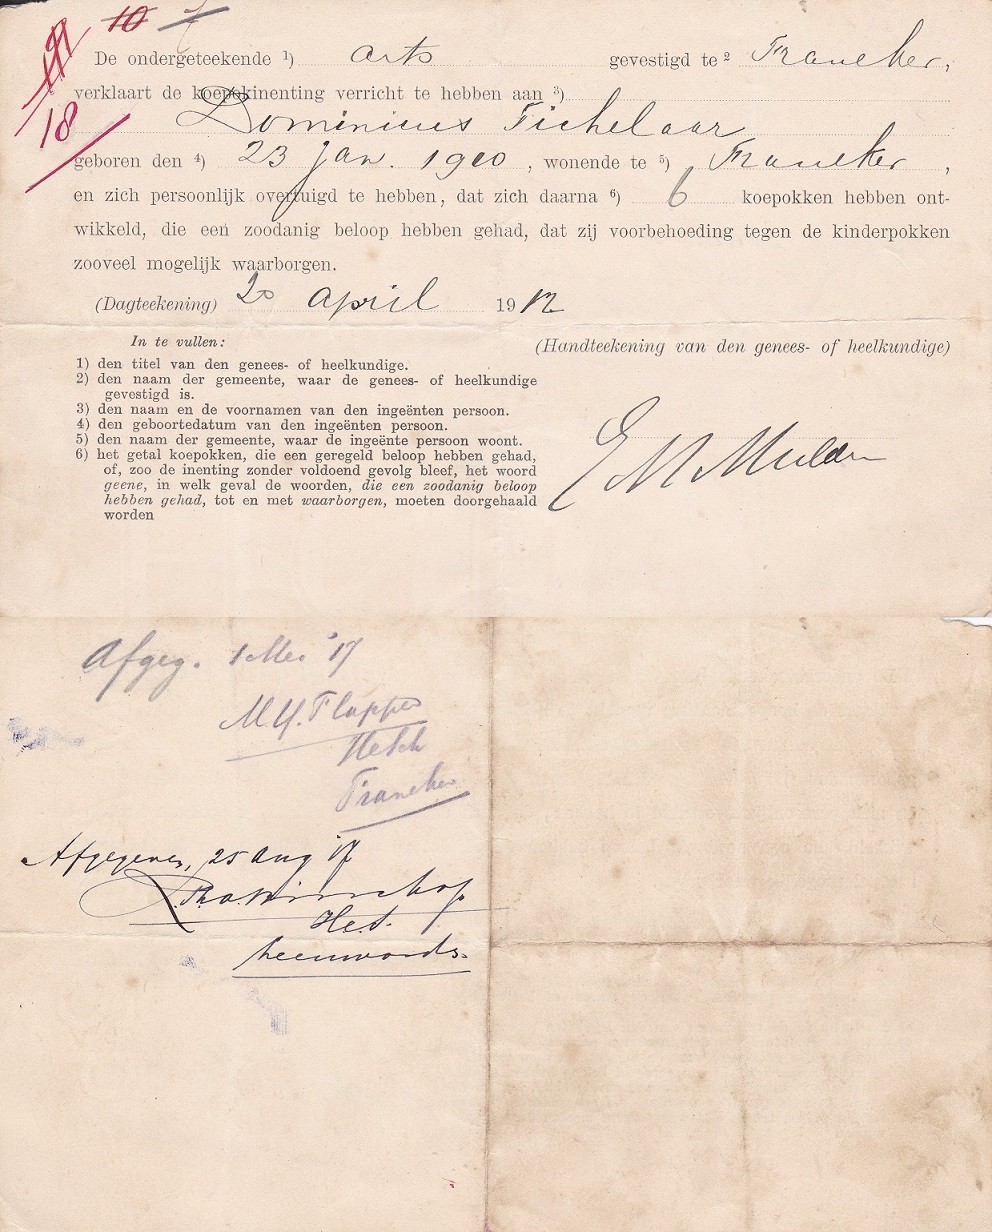 10 7
18
De ondergeteekende 1) arts gevestigd te 2 Franeker,
verklaart de koepokinenting verricht te hebben aan 3)
Dominicus Tichelaar
geboren den 4) 23 Jan. 1910, wonende te 5) Franeker,
en zich persoonlijk overtuigd te hebben, dat zich daarna 6) 6 koepokken hebben ont-
wikkeld, die een zoodanig beloop hebben gehad, dat zij voorbehoeding tegen de kinderpokken
zooveel mogelijk waarborgen.
(Dagteekening) 20 april 1912
(Handteekening van den genees- of heelkundige)
E M Mulder
In te vullen:
1) den titel van den genees- of heelkundige.
2) den naam der gemeente, waar de genees- of heelkundige
gevestigd is.
3) den naam en de voornamen van den ingeënten persoon.
4) den geboortedatum van den ingeënten persoon.
5) den naam der gemeente, waar de ingeënte persoon woont.
6) het getal koepokken, die een geregeld beloop hebben gehad,
of, zoo de inenting zonder voldoend gevolg bleef, het woord
geene, in welk geval de woorden, die een zoodanig beloop
hebben gehad, tot en met waarborgen, moeten doorgehaald
worden
Afgeg. 1 Mei '17
M.H. Flappes
Franeker
Afgegeven, 25 Aug 17
H.d.S.
Leeuwards.